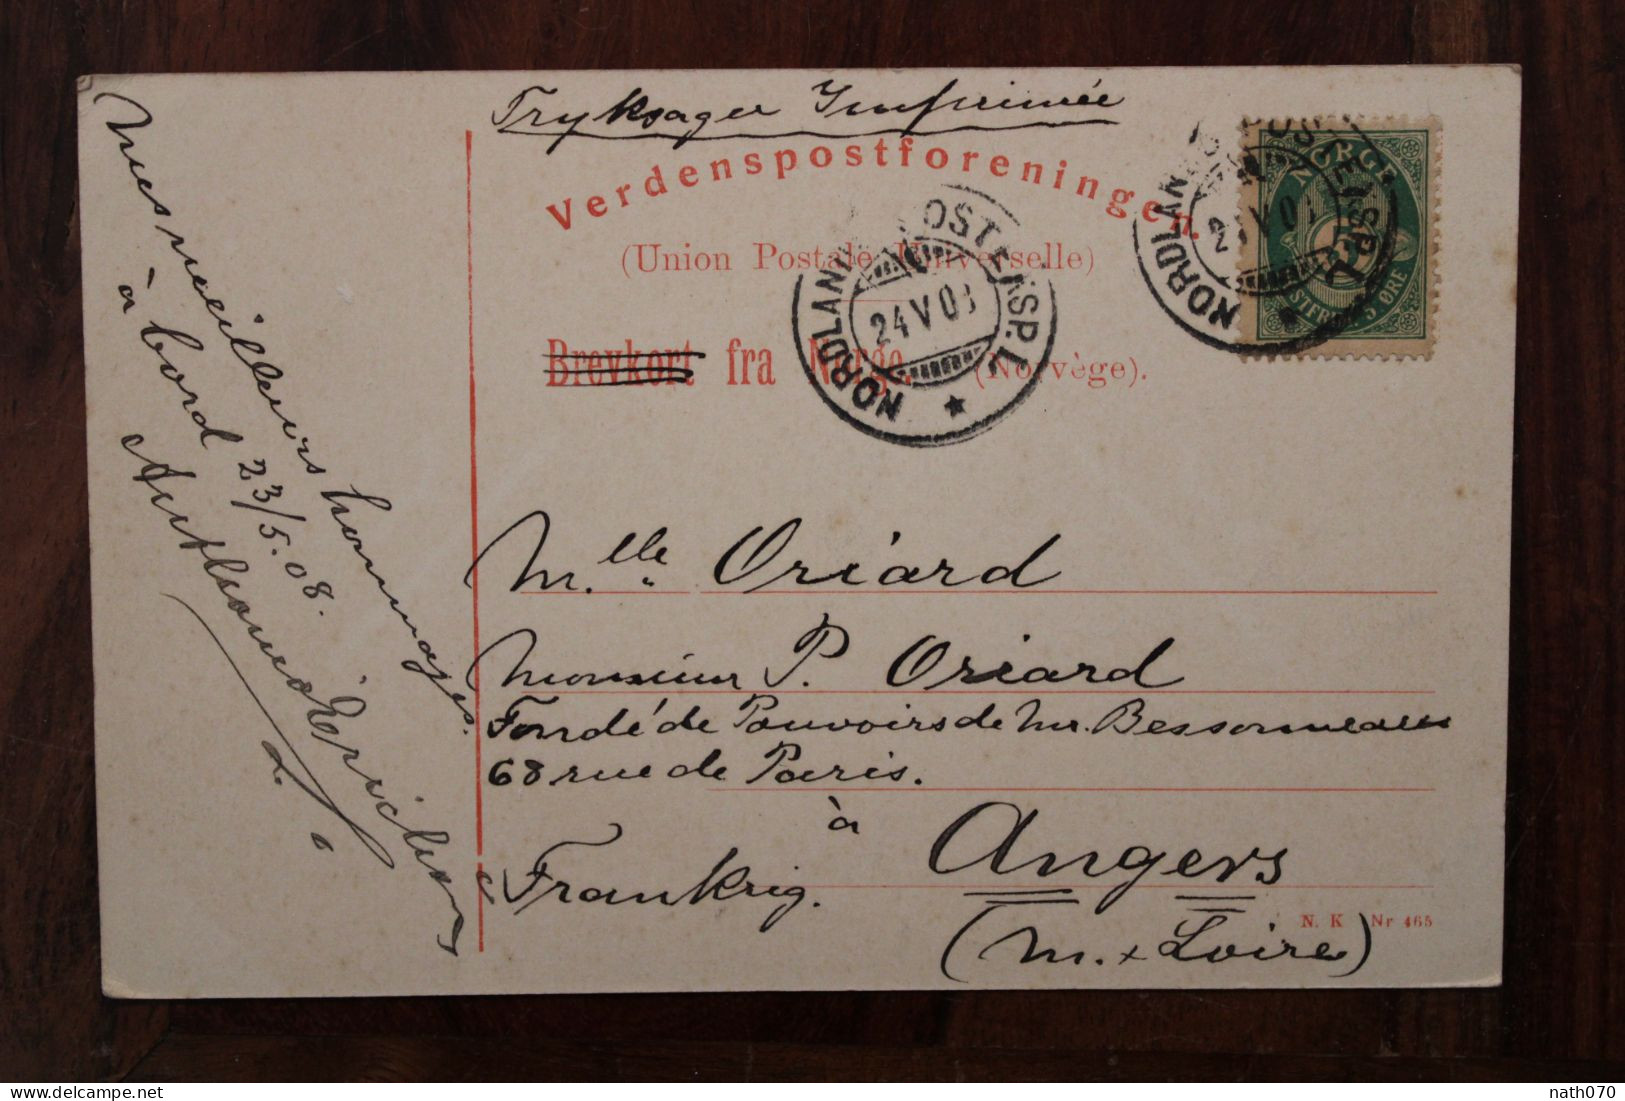 Tryksager Imprimée
Verdenspostforeningen.
(Union Postale Universelle)
Brevkort fra Norge. (Norvège).
NORDLANDS POSTEKSP. L
24 V 08
NORDLANDS POSTEKSP. L
24 V 08
NORGE
POSTFRIM. 5 ØRE
Mes meilleurs hommages.
à bord 23/5.08.
Mlle. Oriard
Monsieur P. Oriard
Fondé de Pouvoirs de Mr. Bessonneau
68 rue de Paris.
à Angers
Frankrig.
(M. & Loire)
N. K Nr 465
delcampe.net
nath070